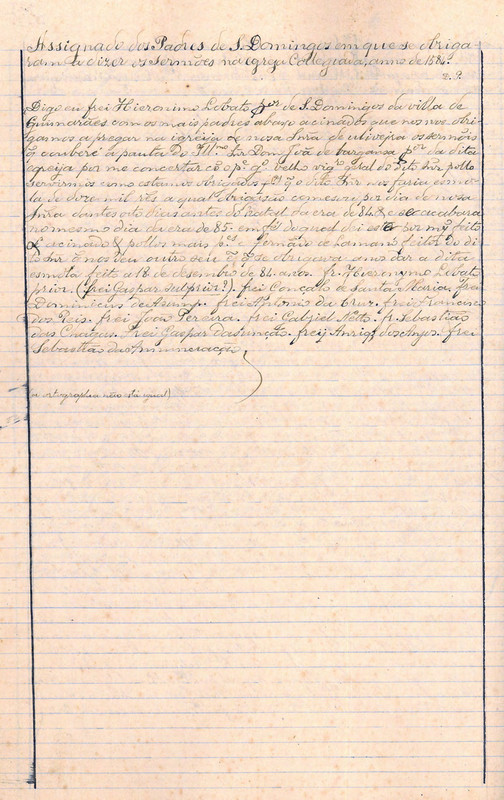 Assignado dos Padres de S. Domingos em que se obriga-
ram a dizer os Sermões na egreja Collegiada, anno de 1584.
Digo eu frei Hieronimo Lobato p.or de S. Domingos da villa de
Guimarães com os mais padres abaixo acinados que nos nos obri-
gamos a pregar na igreija de nosa Snra de uliveira os sermõis
q̃ couber é a pauta do Ill.mo Snr Dom Joã de bargansa p.or da dita
egreija por me concertar cõ o p.e g.o belho vig.ro geral do dito Snr pollo
servirmos como estamos obrigados q̃ o dito Snr nos faria esmo-
la de doze mil rês a qual obrigaçaõ comesou por dia de nosa
Snra dantes oito dias antes do natal da era de 84 & se acabara
no mesmo dia da era de 85. em fé do qual dei este por my feito
& acinado & pollos mais p.es e fernaõ de Lamans feitor do di-
to Snr e nos deu outro seu ẽ q̃ se obrigava a nos dar a dita
esmola feito a 18 de desembro de 84 anos. fr. Hieronymo Lobato
prior. (frei Gaspar sulprior?). frei Gonçalo de Santa Maria, frei
Dominicus da Asump. frei Antonio da Cruz. frei Francisco
dos Reis. frei João Pereira. frei Gabriel Netto. fr. Sebastião
das Chagas. frei Gaspar Dasunção. freij Anriq̃ dos Anjos. frei
Sebastião da Annunciação.
(a ortographia não está igual)